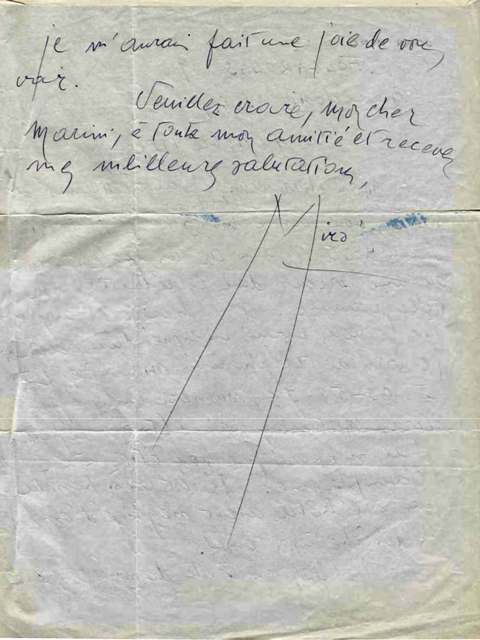 je m'aurais fait une joie de vous
voir.
Veuillez croire, mon cher
Marini, à toute mon amitié et recevez
mes meilleures salutations,
Miró